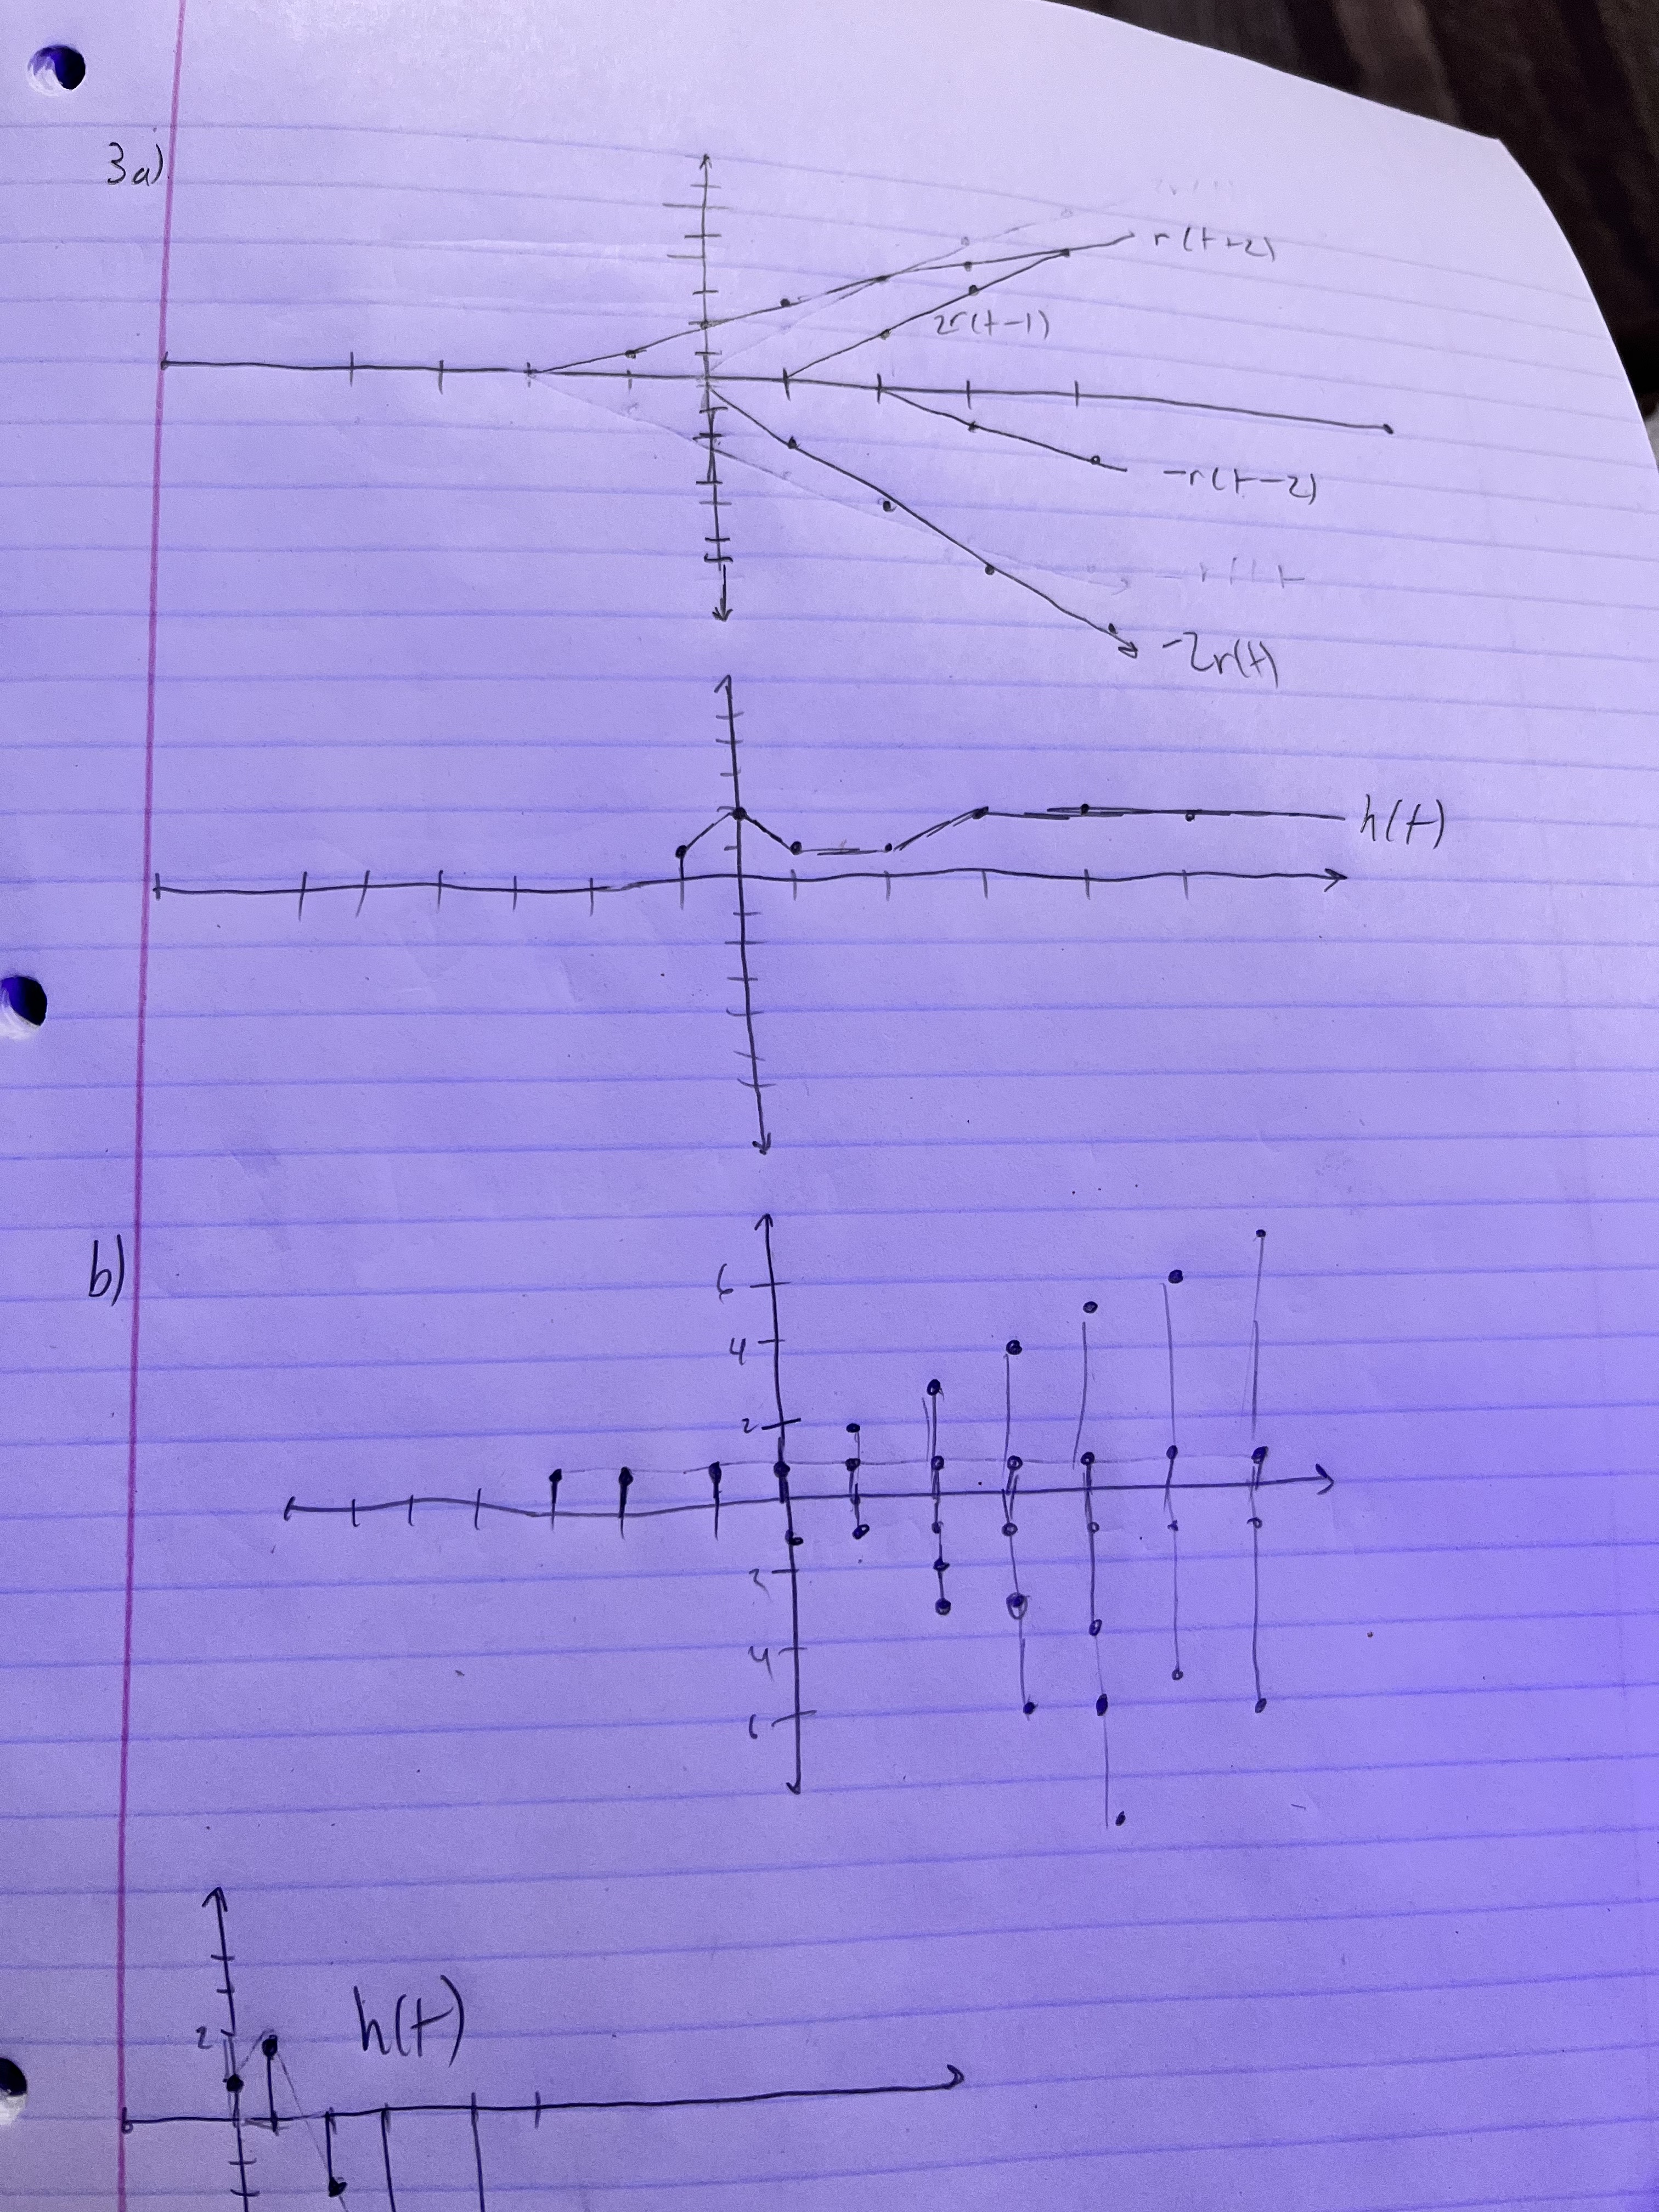 3a)
r(t+2)
2r(t-1)
-r(t-2)
-2r(t)
h(t)
b)
6
4
2
2
4
6
h(t)
2